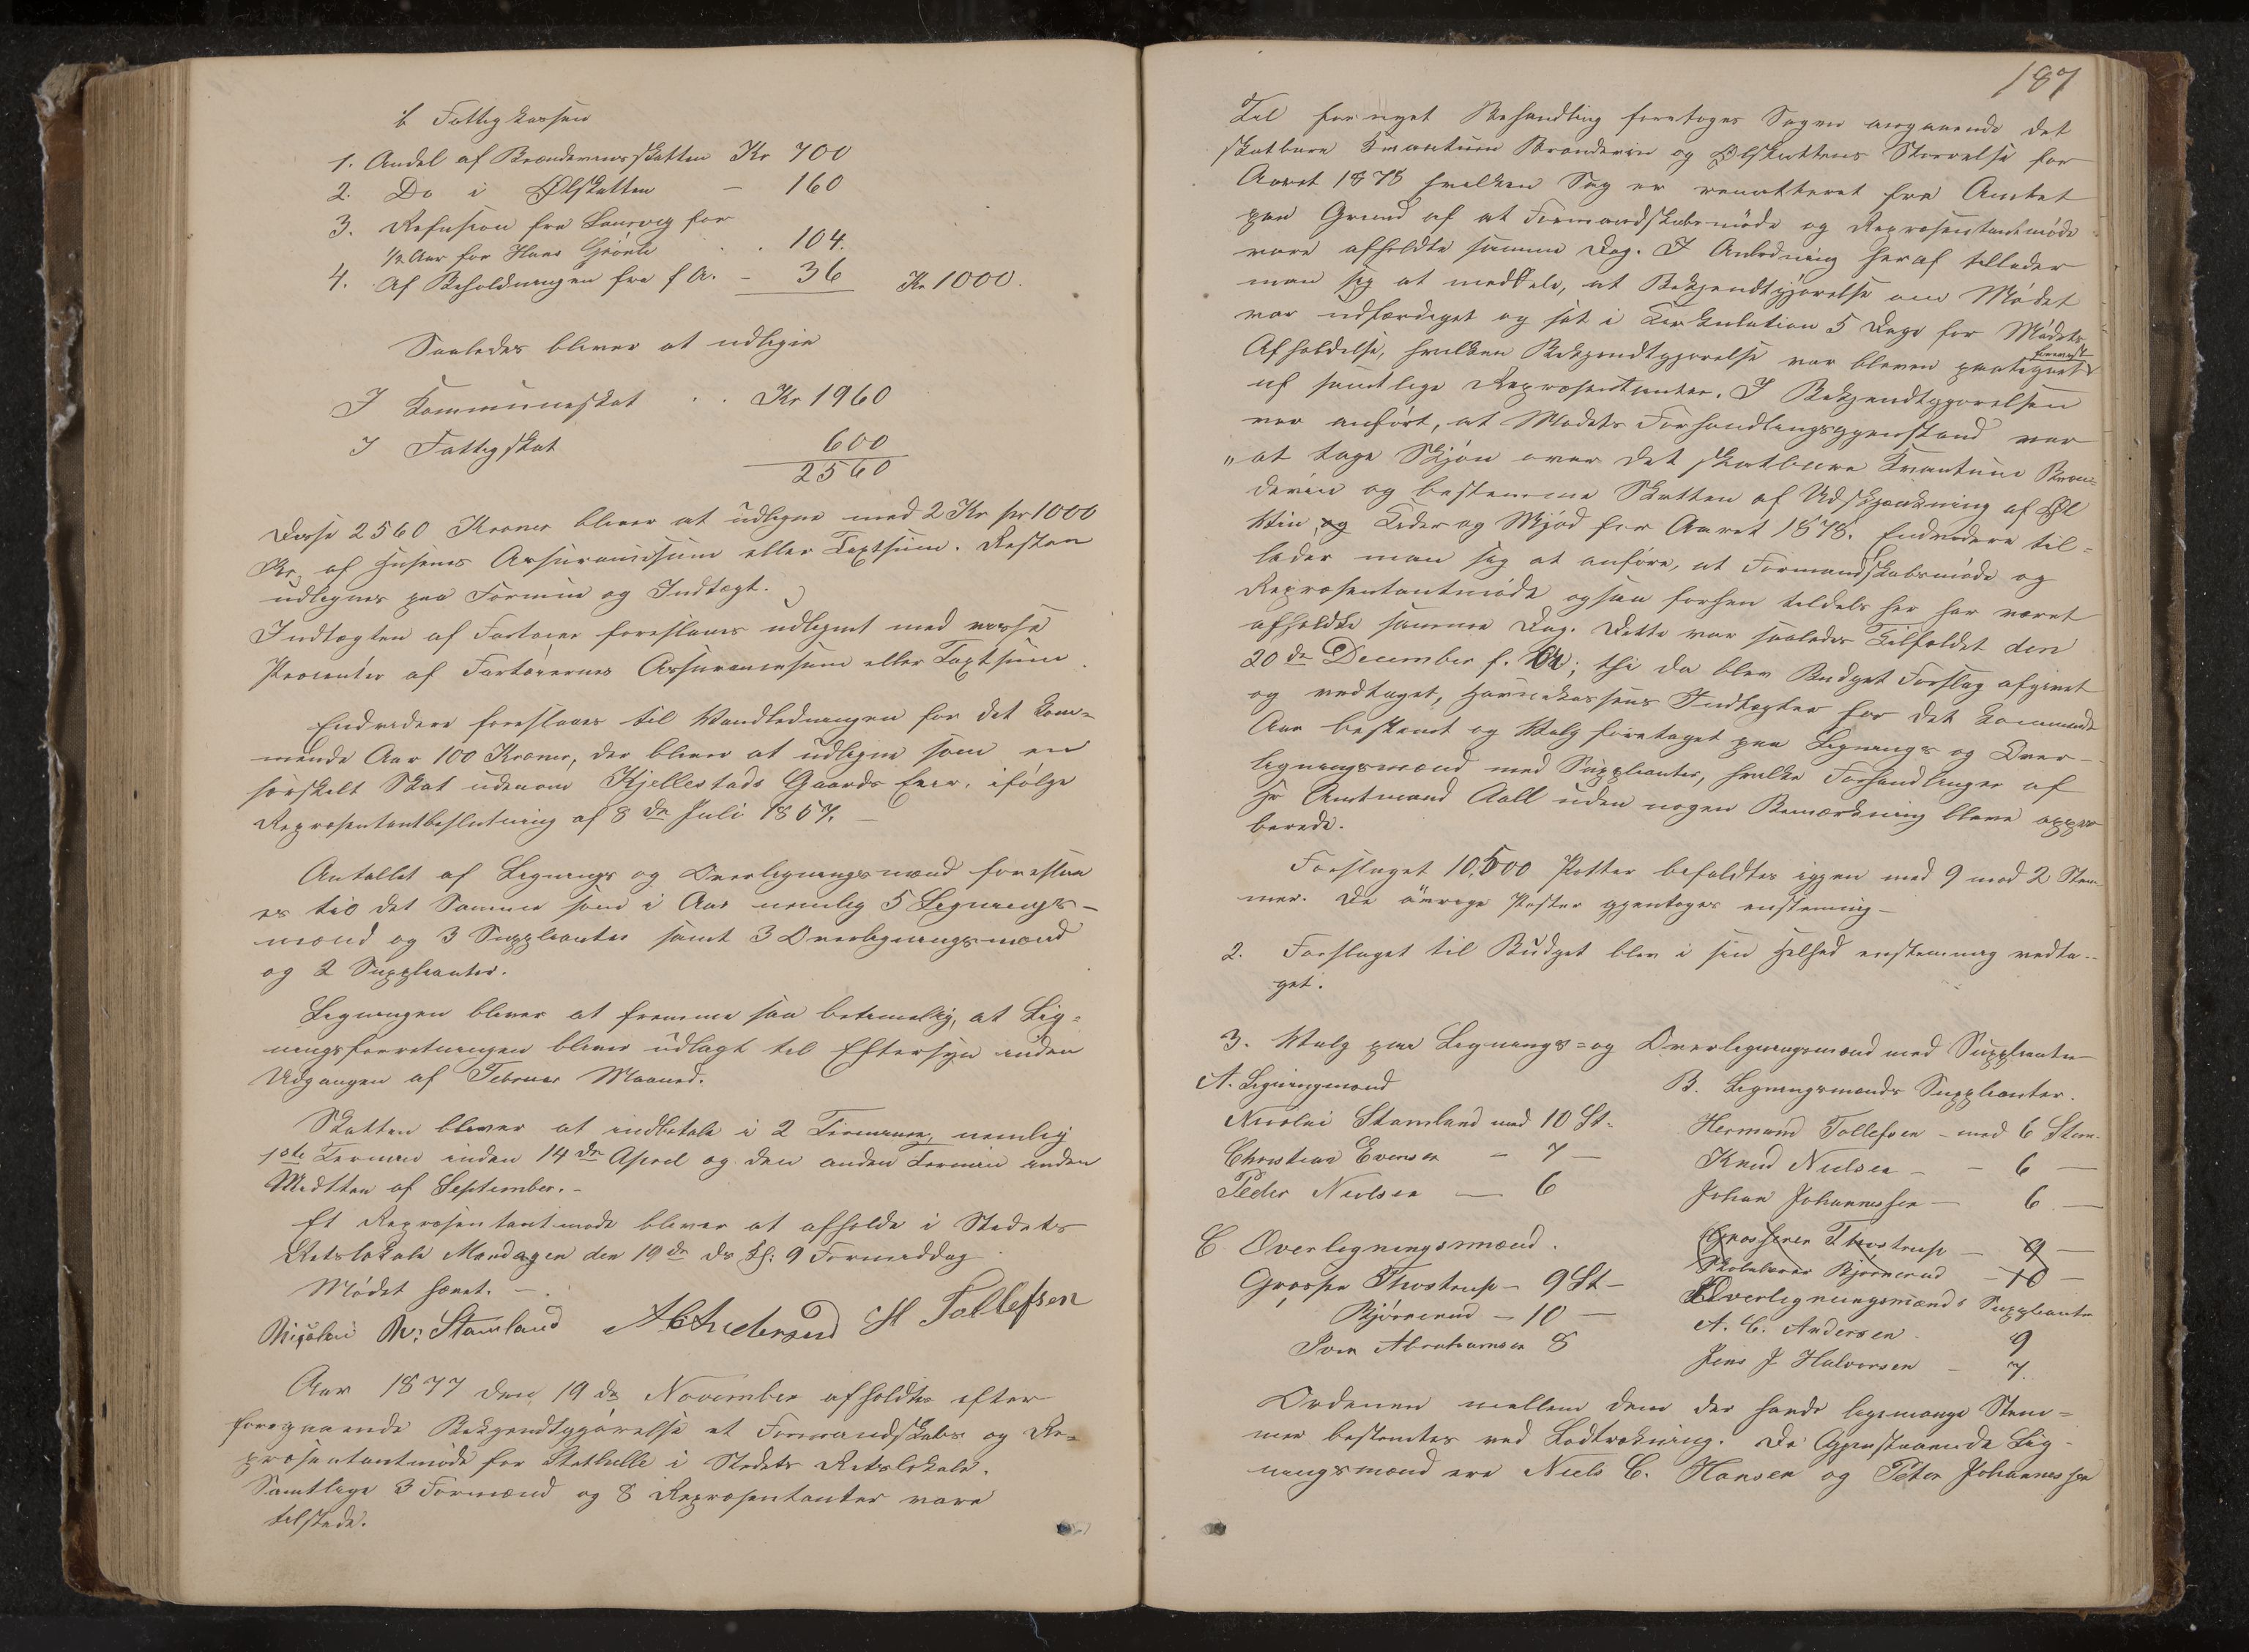 b Fattigkassen
1. Andel af Brændevinsskatten Kr 700
2. Do i Ølskatten – 160
3. Refusion fra Laurvig for
1/2 Aar for Hans 104.
4. Af Beholdningen fra f A. – 36 Kr 1000.
Saaledes bliver at udligne
I Kommuneskat . . Kr 1960
I Fattigskat 600
2560
Disse 2560 Kroner bliver at udligne med 2 Kr pr 1000
Kr, af Husenes Assurancesum eller Taxtsum. Resten
udlignes paa Formue og Indtægt.
Indtægten af Fartøier foreslaaes udlignet med visse
Procenter af Fartøiernes Assurancesum eller Taxtsum.
Endvidere foreslaaes til Vandledningen for det kom=
mende Aar 100 Kroner, der bliver at udligne som en
særskilt Skat udenom Kjellestads Gaards Eier, ifølge
Repræsentantbeslutning af 8de Juli 1867. –
Antallet af Lignings og Overligningsmænd foreslaa
es til det Samme som i Aar nemlig 5 Lignings-
mænd og 3 Suppleanter samt 3 Overligningsmænd
og 2 Suppleanter.
Ligningen bliver at fremme saa betimelig, at Lig=
ningsforretningen bliver udlagt til Eftersyn inden
Udgangen af Februar Maaned.
Skatten bliver at indbetale i 2 Terminer, nemlig
1ste Termin inden 14de April og den anden Termin inden
Midtten af September. –
Et Repræsentantmøde bliver at afholde i Stedets
Retslokale Mandagen den 19de ds Kl: 9 Formiddag
Mødet hævet. –
Nicolai N: Stamland A C Andersen H Tollefsen
Aar 1877 den 19de November afholdtes efter
foregaaende Bekjendtgjørelse et Formandskabs og Re=
præsentantmøde for Stathelle i Stedets Retslokale.
Samtlige 3 Formænd og 8 Repræsentanter vare
tilstede.
187
Til fornyet Behandling foretoges Sagen angaaende det
skatbare Kvantum Brændevin og Ølskattens Størrelse for
Aaret 1878 hvilken Sag er remitteret fra Amtet
paa Grund af at Formandskabsmøde og Repræsentantmøde
vare afholdte samme Dag. I Anledning heraf tillader
man sig at meddele, at Bekjendtgjørelse om Mødet
var udfærdiget og sat i Cirkulation 5 Dage før Mødets
Afholdelse, hvilken Bekjendtgjørelse var bleven paategnet
af samtlige Repræsentanter. I Bekjendtgjørelsen
var anført, at Mødets Forhandlingsgjenstand var
„at tage Skjøn over det skatbare Kvantum Bræn=
devin og bestemme Skatten af Udskjænkning af Øl
Vin, og Cider og Mjød for Aaret 1878. Endvidere til=
lader man sig at anføre, at Formandskabsmøde og
Repræsentantmøde ogsaa forhen tildels her har været
afholdte samme Dag. Dette var saaledes Tilfældet den
20de December f. Ar; thi da blev Budget Forslag afgivet
og vedtaget, Havnekassens Indtægter for det kommende
Aar bestemt og Valg foretaget paa Lignings og Over-
ligningsmænd med Suppleanter, hvilke Forhandlinger af
Hr Amtmand Aall uden nogen Bemærkning bleve appro
berede.
Forslaget 10,500 Potter befaldtes igjen med 9 mod 2 Stem
mer. De øvrige Poster gjentoges enstemmig –
2. Forslaget til Budget blev i sin Helhed enstemmig vedta-
get.
3. Valg paa Lignings= og Overligningsmænd med Suppleanter
A. Ligningsmænd
Nicolai Stamland med 10 St.
Christian Evensen – 7 –
Peder Nielsen – 6
B. Ligningsmænds Suppleanter.
Hermand Tollefsen – med 6 Stem.
Knud Nielsen – – 6 –
Johan Johannessen – 6 –
C Overligningsmænd.
Grosserer Thostrup – 9 –
Skolelærer Bjørnerud – 10 –
Grosser Thostrup – 9 St –
Bjørnerud – 10 –
Iver Abrahamsen 8
D Overligningsmænds Suppleanter
A. C. Andersen 9
Jens J Halvorsen – 7.
Ordenen mellem dem der havde ligemange Stem=
mer bestemtes ved Lodtrækning. De Gjenstaaende Lig-
ningsmænd ere Niels C. Hansen og Peter Johannessen